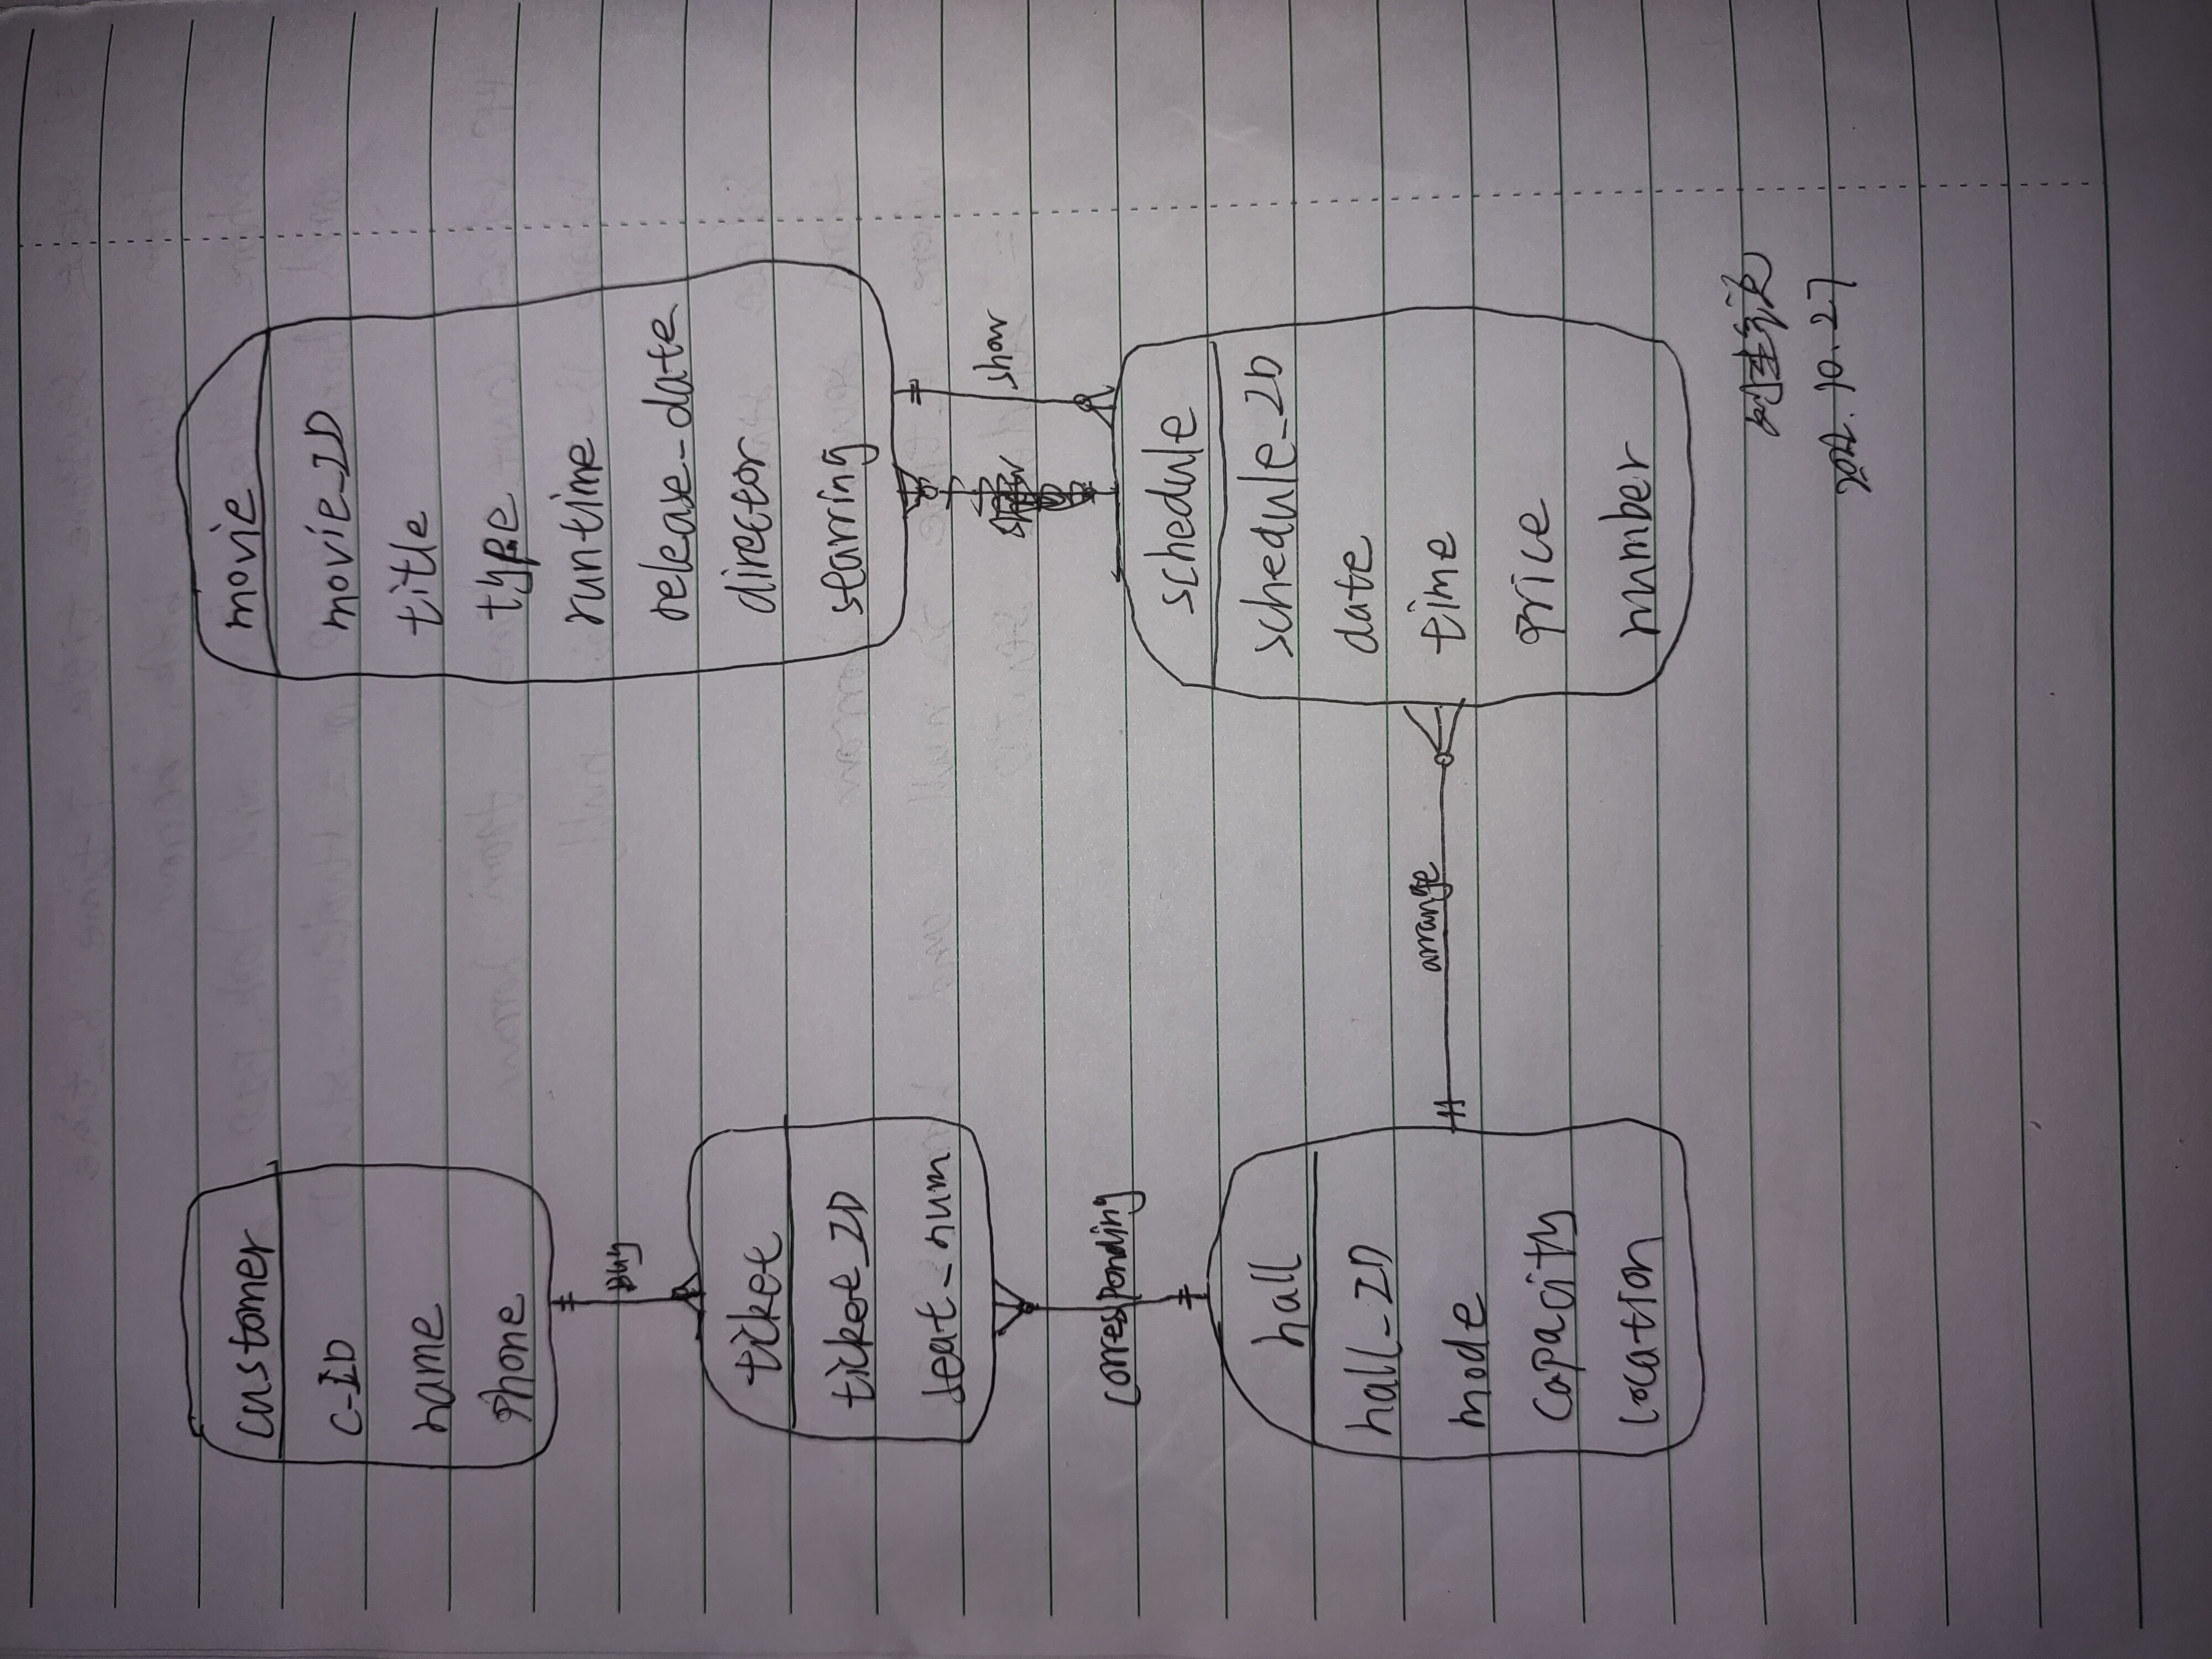 customer
C-ID
name
phone
Buy
ticket
ticket_ID
seat_num
corresponding
hall
hall_ID
mode
capacity
location
arrange
movie
movie_ID
title
type
runtime
release_date
director
starring
show
schedule
schedule_ID
date
time
price
number
2022.10.27